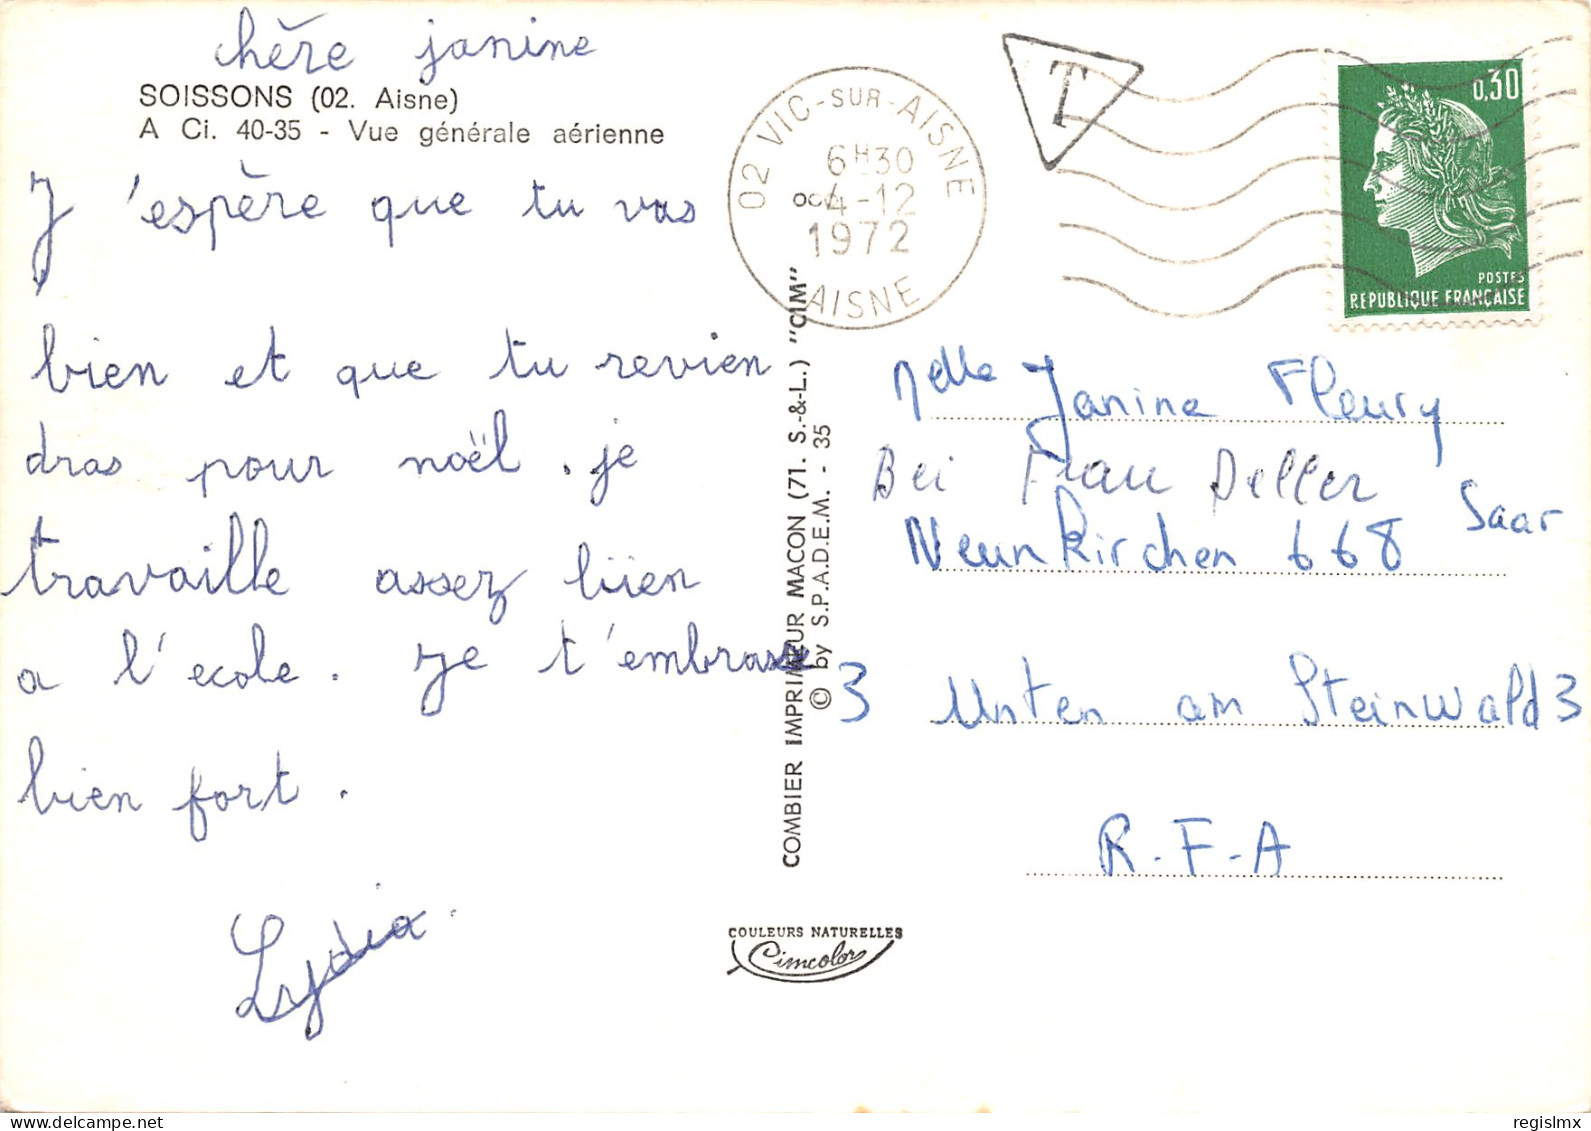 chère janine
SOISSONS (02. Aisne)
A Ci. 40-35 - Vue générale aérienne
J'espère que tu vas
bien et que tu revien
dras pour noël . je
travaille assez biien
a l'ecole . je t'embrasse
bien fort .
Lydia
COMBIER IMPRIMEUR MACON (71. S.-&-L.) "CIM"
© by S.P.A.D.E.M. - 35
COULEURS NATURELLES
Cimcolor
02 VIC-SUR-AISNE
6H30
4-12
1972
AISNE
T
0,30
POSTES
REPUBLIQUE FRANÇAISE
Melle Janine Fleury
Bei Frau Deller
Saar
Neunkirchen 668
3 Unten am Steinwald 3
R.F.A
regislmx